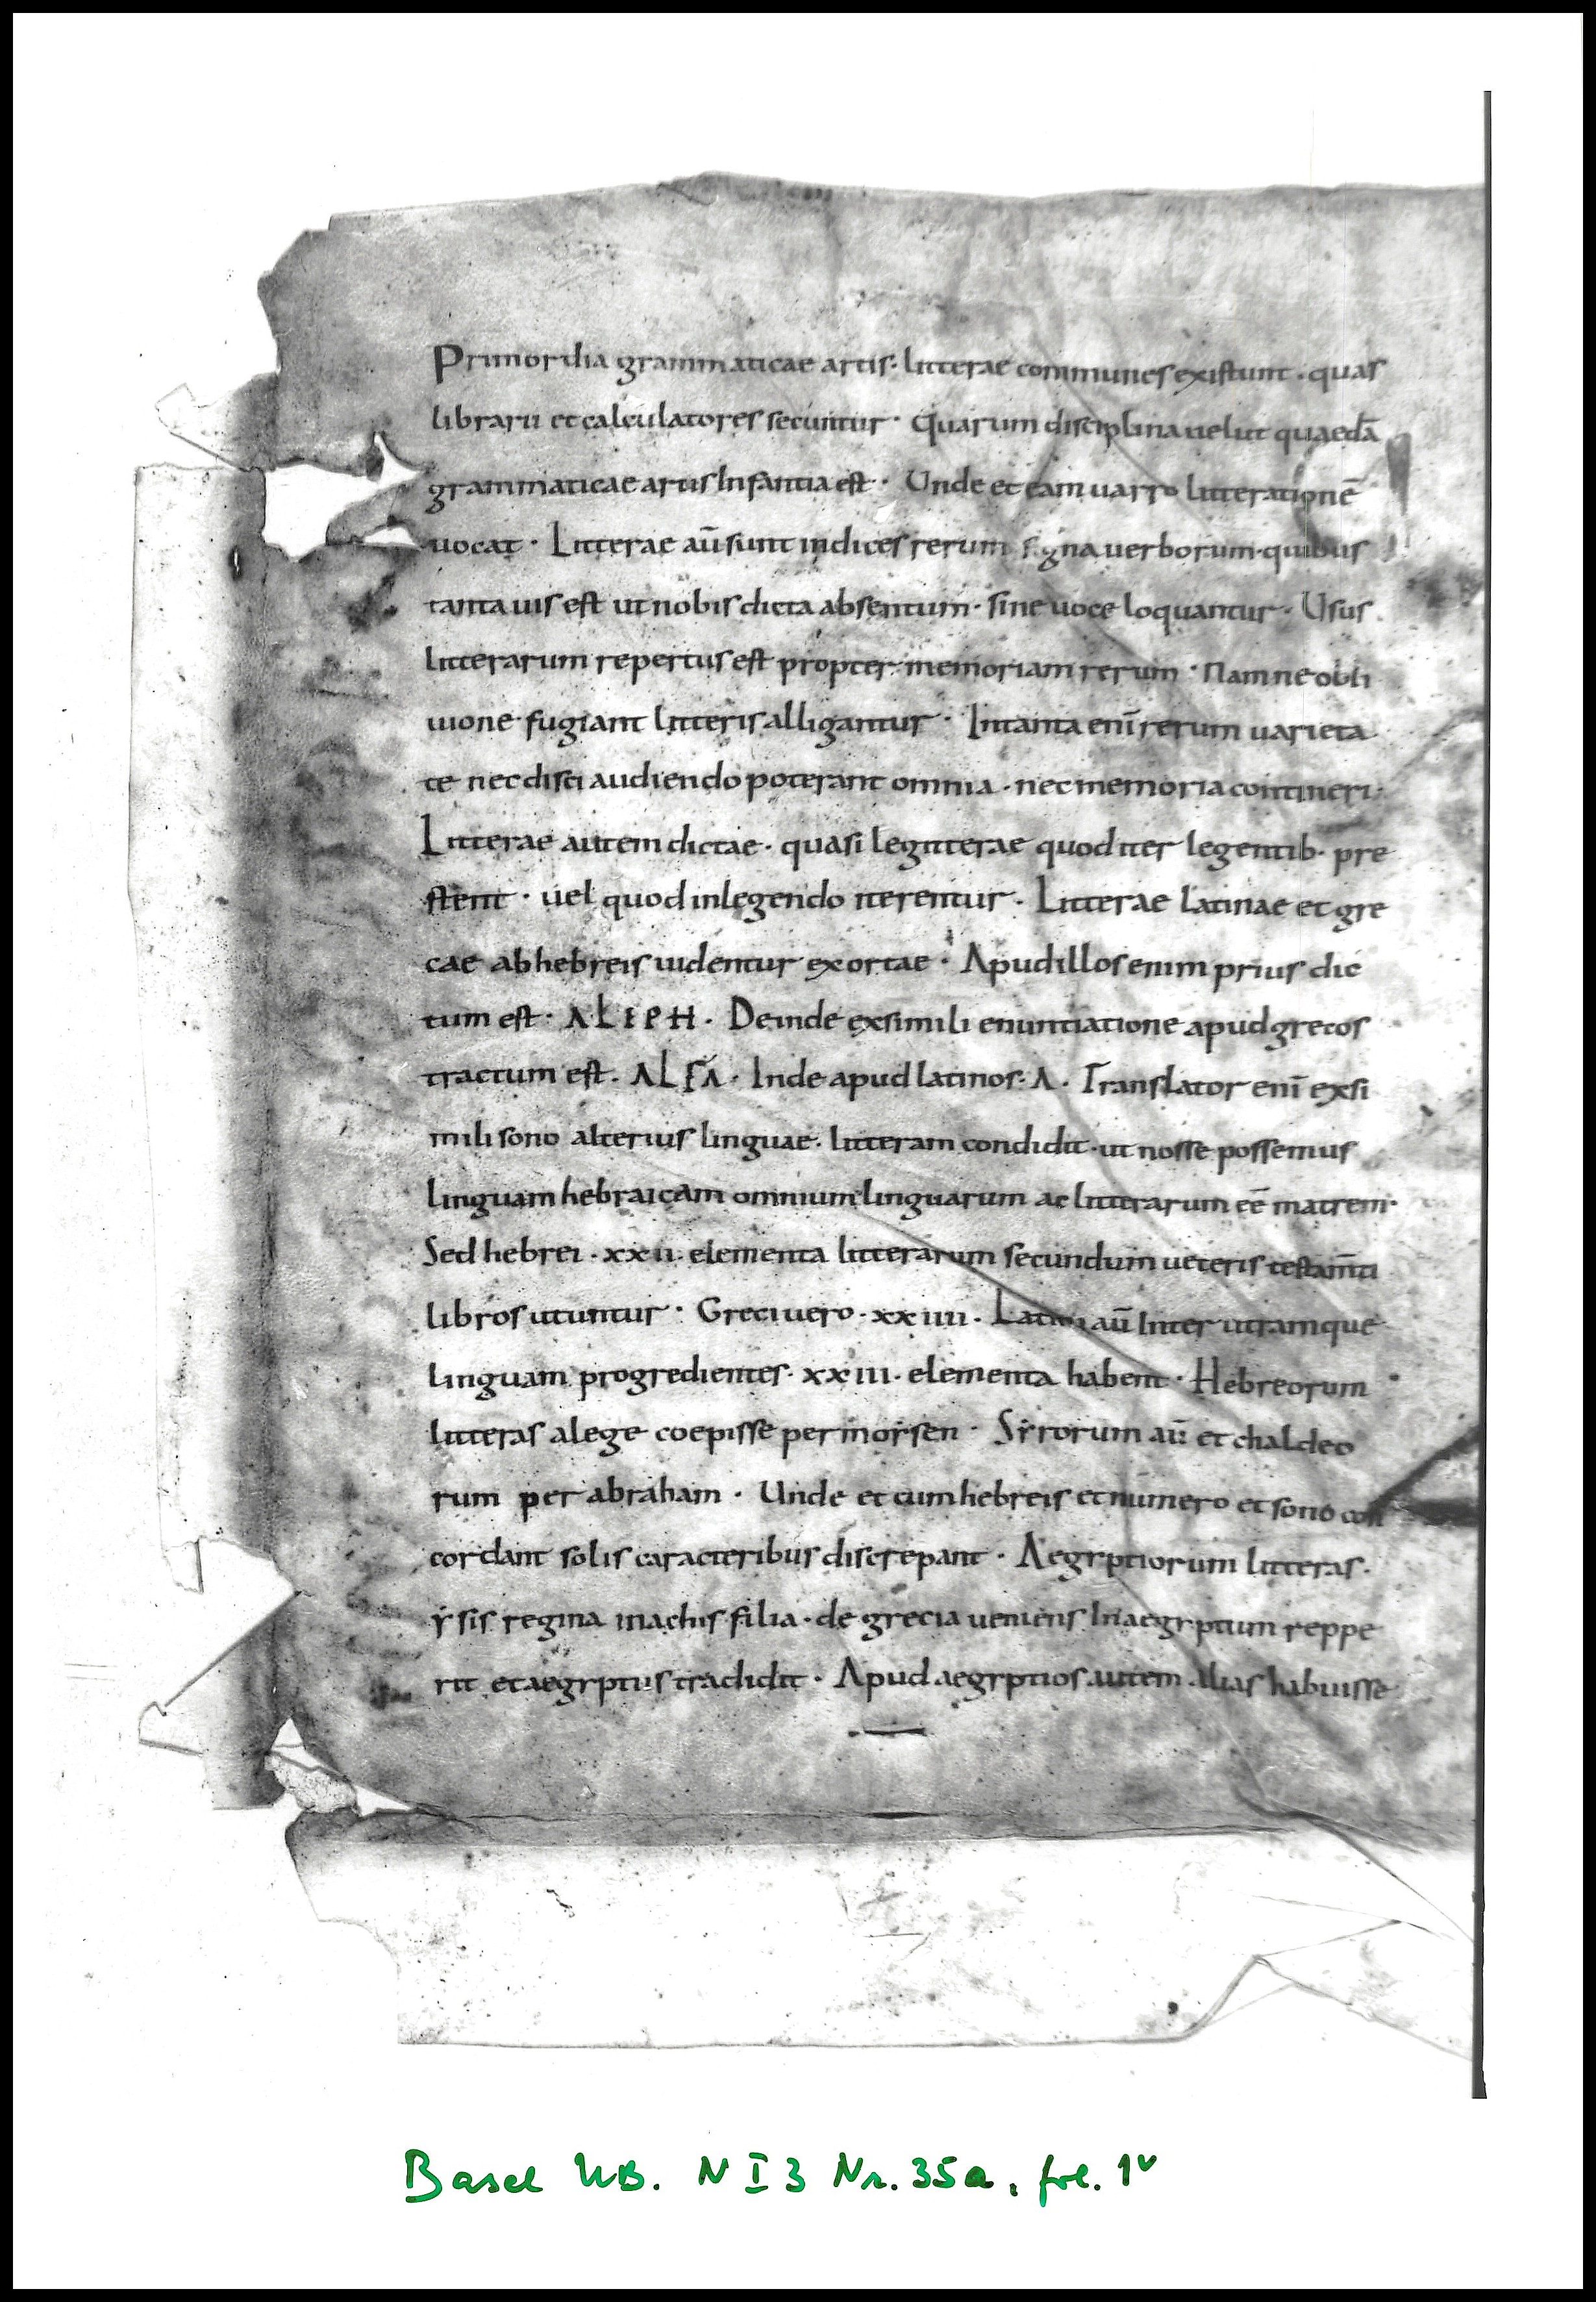 Primordia grammaticae artis· litterae communes existunt · quas
librarii et calculatores secuntur · Quarum disciplina uelut quaedā
grammaticae artis Infantia est · Unde et eam uarro litterationē
uocat · Litterae aū sunt indices rerum signa uerborum · quibus
tanta uis est ut nobis dicta absentum · sine uoce loquantur · Usus
litterarum repertus est propter memoriam rerum · Nam ne obli
uione fugiant litteris alligantur · In tanta enī rerum uarieta
te nec disci audiendo poterant omnia · nec memoria contineri·
Litterae autem dictae · quasi legiterae quod iter legentib· pre
stent · uel quod in legendo iterentur · Litterae latinae et gre
cae ab hebreis uidentur exortae · Apud illos enim prius dic
tum est · ALEPH · Deinde ex simili enuntiatione apud grecos
tractum est · ALFA · Inde apud latinos · A · Translator enī ex si
mili sono alterius linguae · litteram condidit · ut nosse possemus
linguam hebraicam omnium linguarum ac litterarum eē matrem·
Sed hebrei · xxii · elementa litterarum secundum ueteris testam̄ti
libros utuntur · Greci uero · xxiiii · Latini aū Inter utramque
linguam progredientes · xxiii · elementa habent · Hebreorum
litteras a lege coepisse per moẏsen · Sẏrorum aū et chaldeo
rum per abraham · Unde et cum hebreis et numero et sono con
cordant solis caracteribus discrepant · Aegyptiorum litteras·
ẏsis regina inachis filia · de grecia ueniens In aegyptum reppe
rit et aegyptiis tradidit · Apud aegyptios autem alias habuisse
Basel UB. N I 3 Nr. 35a, fol. 1v